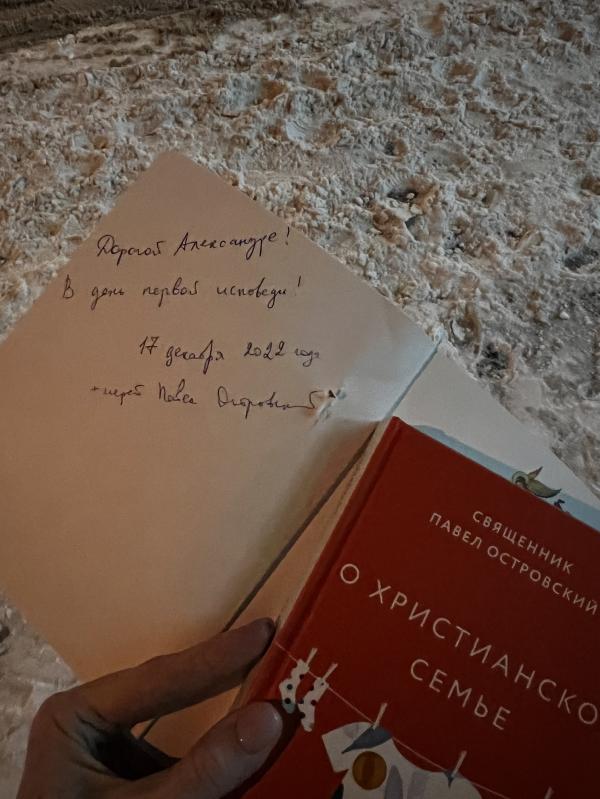 Дорогой Александре!
В день первой исповеди!
17 декабря 2022 года
+иерей Павел Островский
СВЯЩЕННИК
ПАВЕЛ ОСТРОВСКИЙ
О ХРИСТИАНСКО
СЕМЬЕ